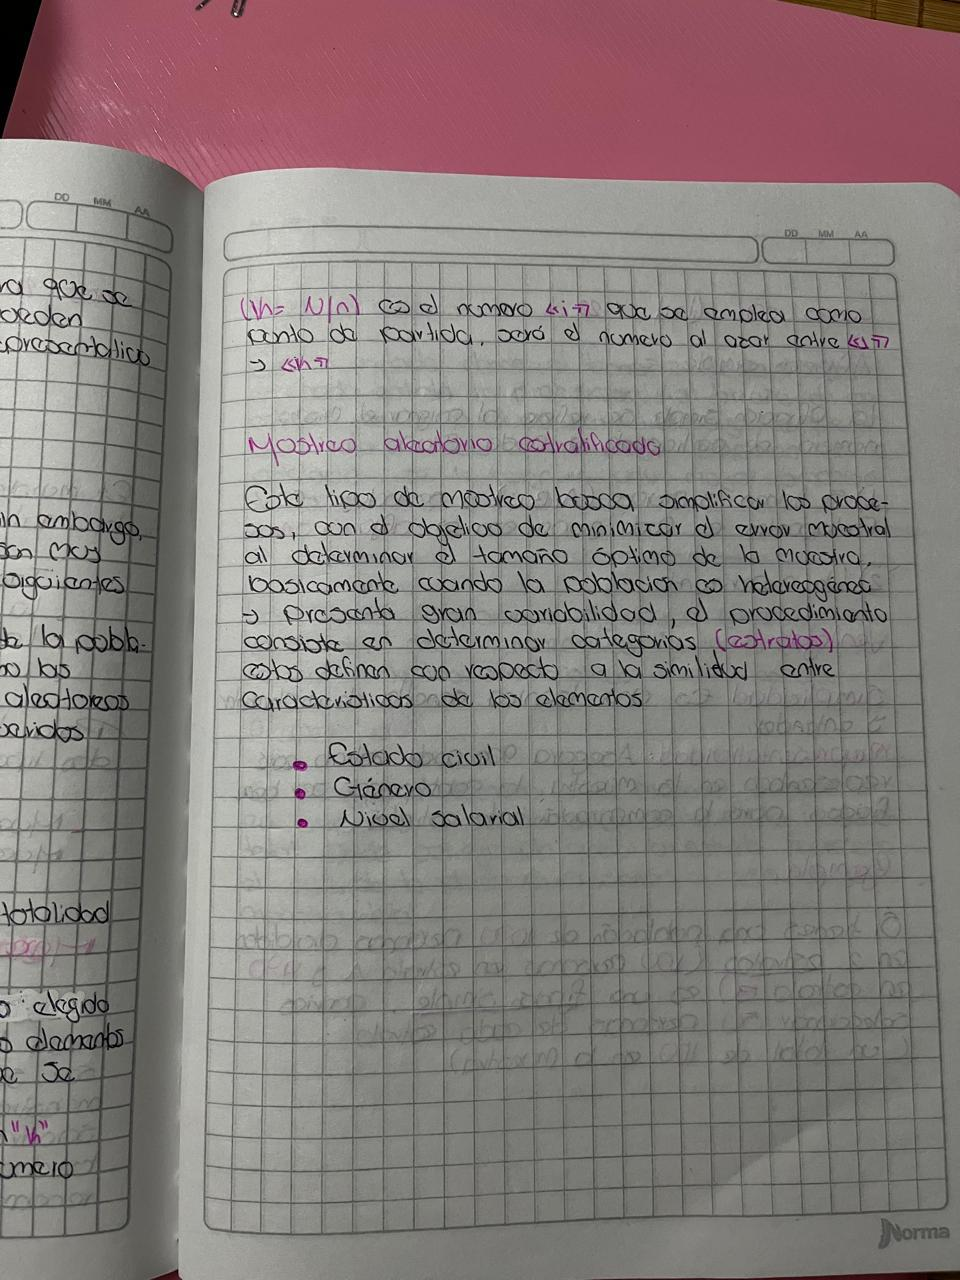 DD MM AA
a que se
pueden
representativo
in embargo,
son muy
siguientes
de la pobla-
o, los
aleatoreos
totalidad
o elegido
o elementos
se
"K"
umero
DD MM AA
(K= N/n) es el numero «i» que se emplea como
punto de partida, será el numero al azar entre «1»
y «K»
Mostreo aleatorio estratificado
Este tipo de mostreo busca simplificar los proce-
sos, con el objetivo de minimizar el error muestral
al determinar el tamaño óptimo de la muestra,
basicamente cuando la población es heterogénea
y presenta gran variabilidad, el procedimiento
consiste en determinar categorias (estratos)
estos definen con respecto a la similidud entre
características de los elementos
• Estado civil
• Género
• Nivel salarial
Norma